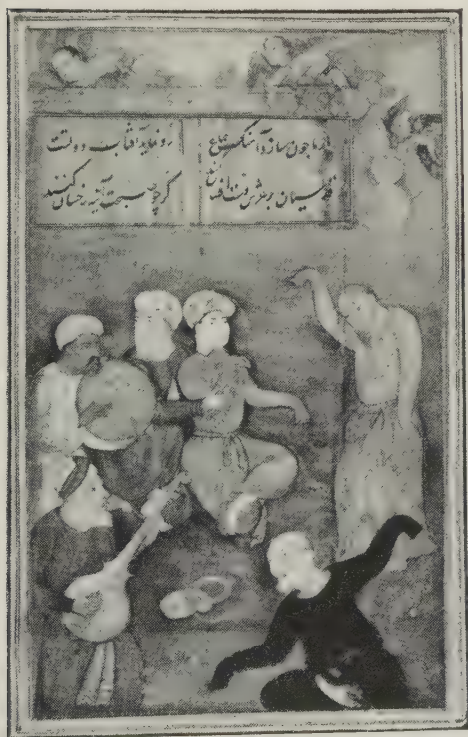 یار ما چون سازد آهنگ سماع
قدسیان بر عرش دست افشان
رو نماید آفتاب دولتت
گر چو صبحت آینه رخشان کنند